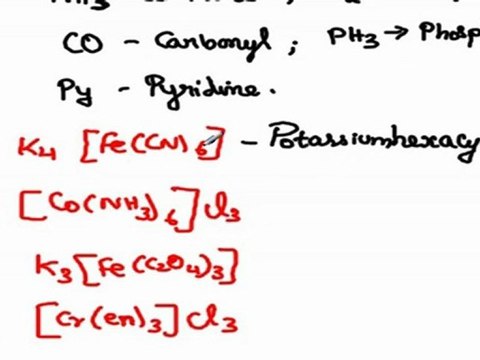 CO - Carbonyl ; PH3 → Phosp
Py - Pyridine .
K4 [Fe(CN)6] - Potassiumhexacy
[Co(NH3)6]Cl3
K3[Fe(C2O4)3]
[Cr(en)3]Cl3